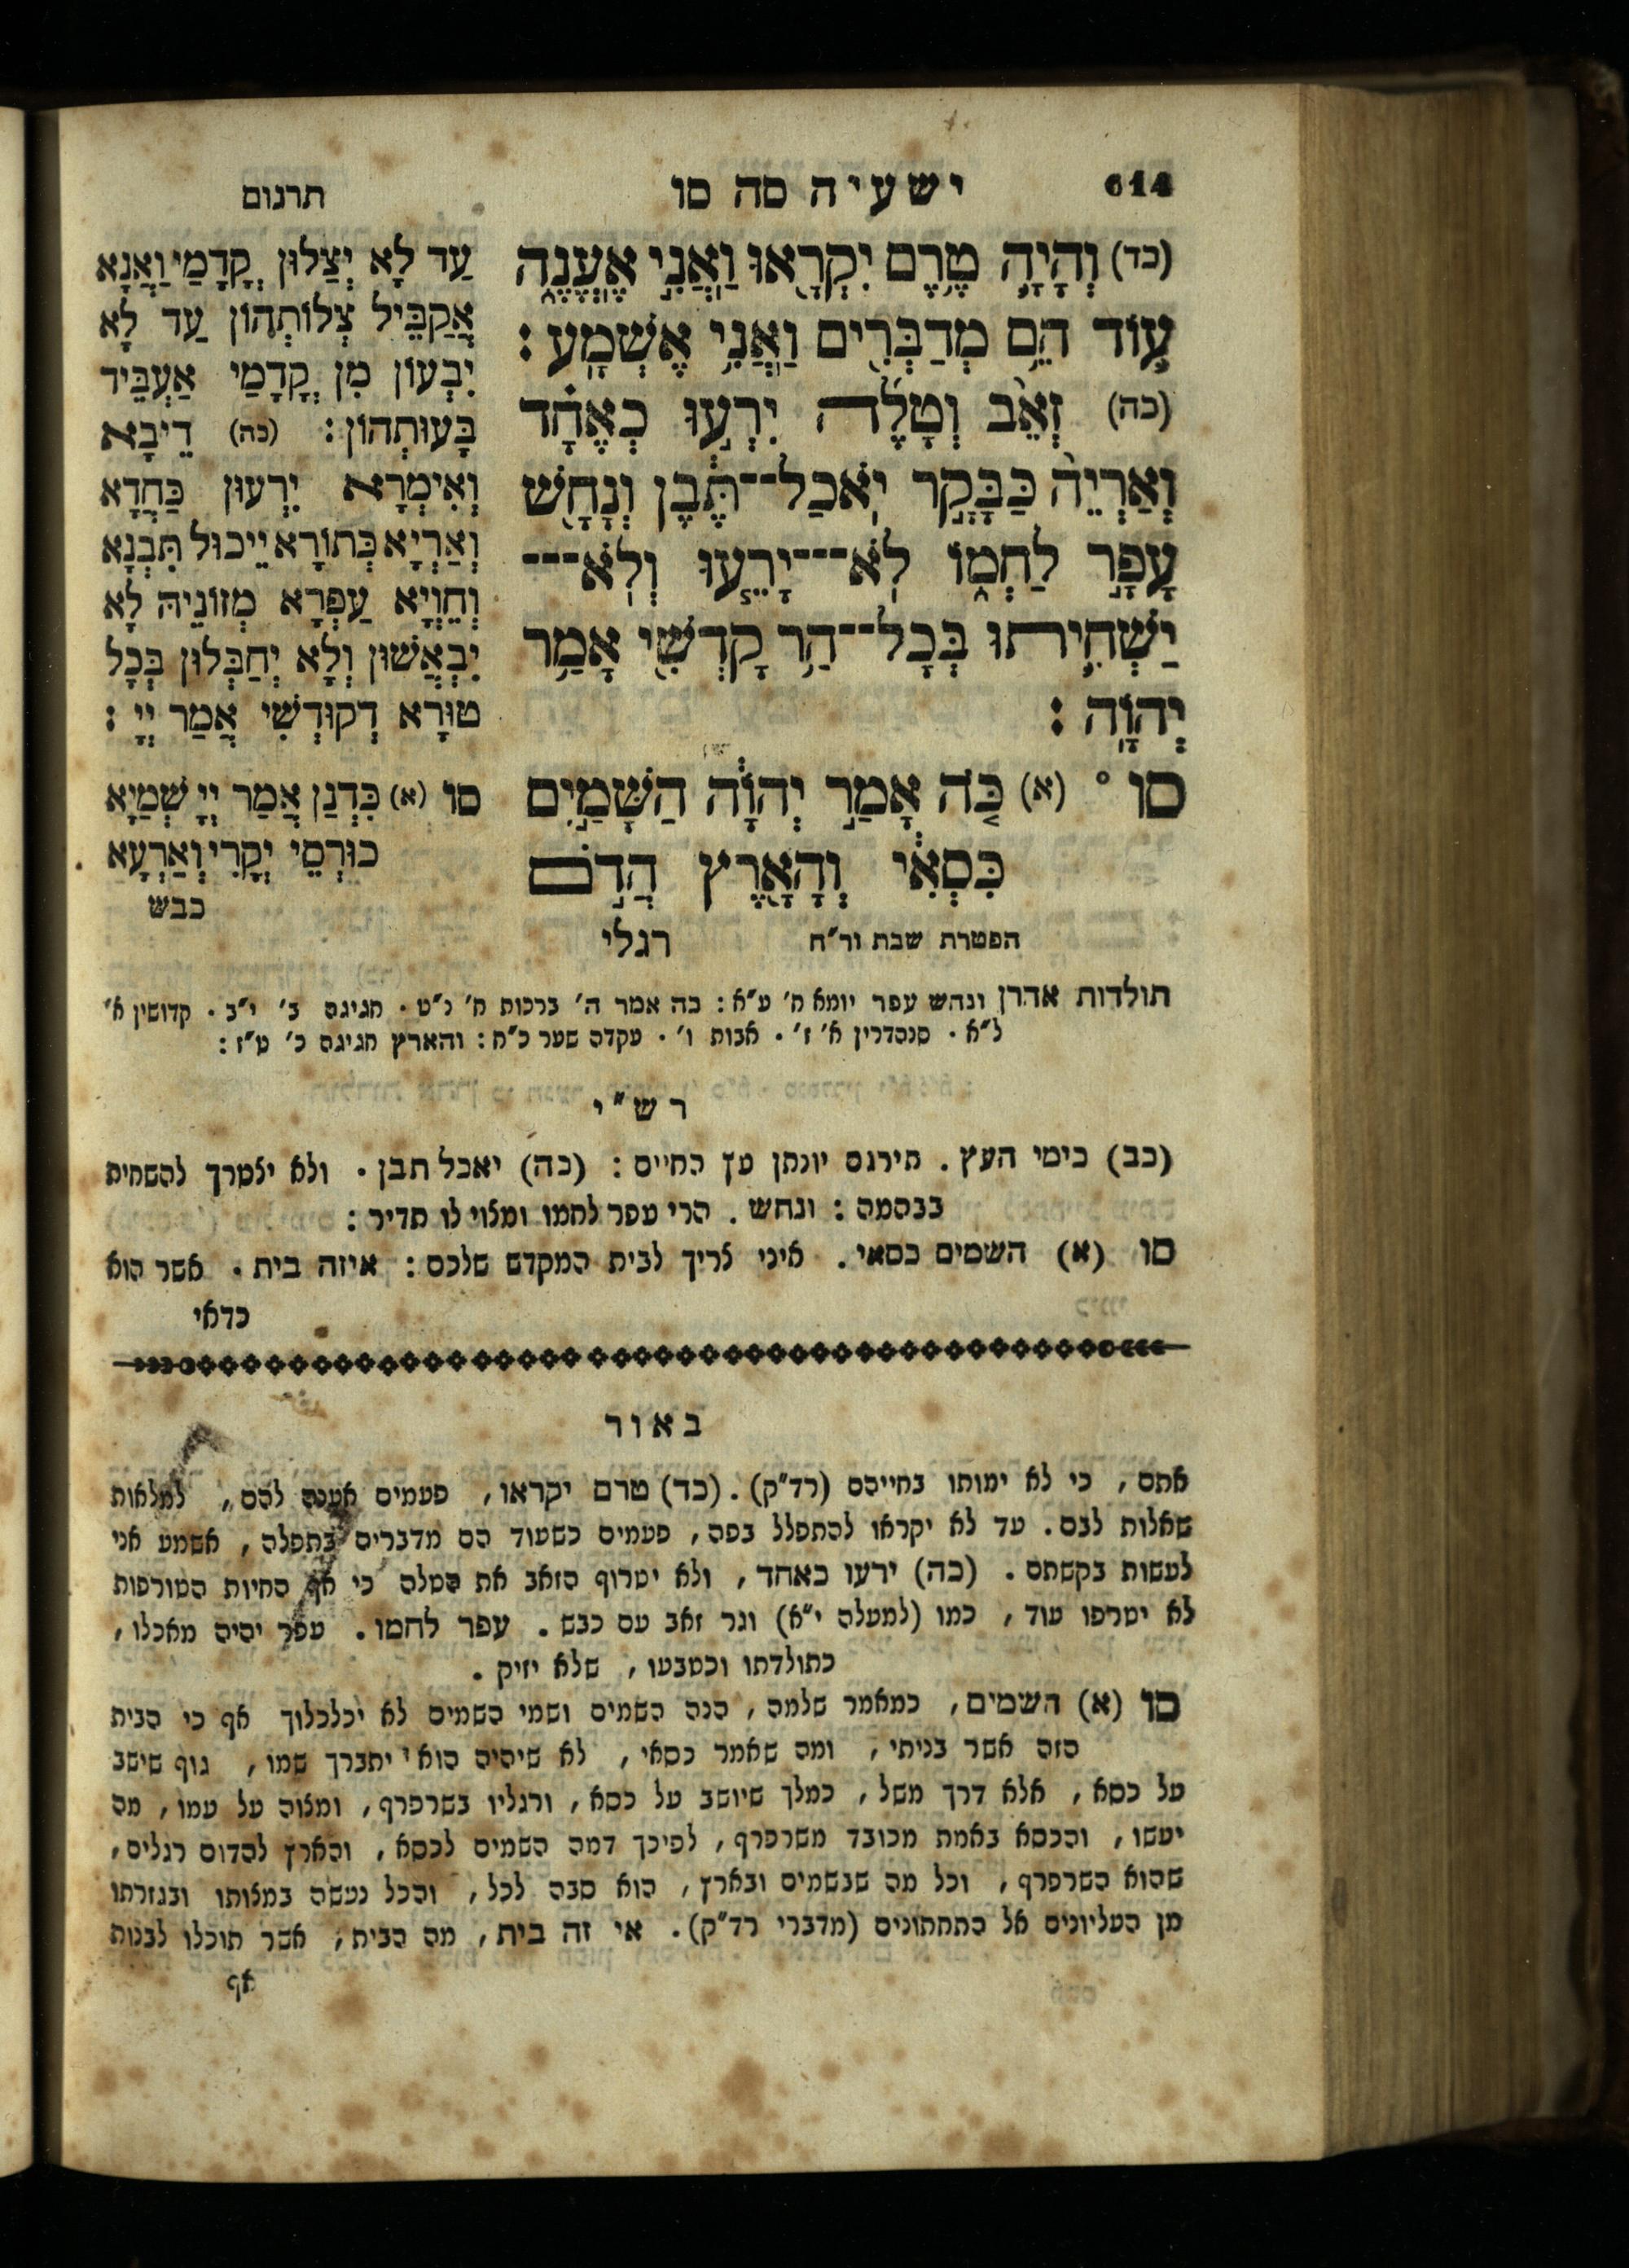 614
ישעיה סה סו
תרגום
(כד) וְהָיָ֥ה טֶ֥רֶם יִקְרָ֖אוּ וַֽאֲנִ֣י אֶֽעֱנֶ֑ה
ע֛וֹד הֵ֥ם מְדַבְּרִ֖ים וַֽאֲנִ֥י אֶשְׁמָֽע:
(כה) זְאֵ֨ב וְטָלֶ֜ה יִרְע֣וּ כְאֶחָ֗ד
וְאַרְיֵה֙ כַּבָּקָ֣ר יֹֽאכַל־־תֶּ֔בֶן וְנָחָ֖שׁ
עָפָ֣ר לַחְמ֑וֹ לֹֽא־־־יָרֵ֧עוּ וְלֹֽא־־־
יַשְׁחִ֛יתוּ בְּכָל־־הַ֥ר קָדְשִׁ֖י אָמַ֥ר
יְהוָֹֽה:
סו ° (א) כֹּ֚ה אָמַ֣ר יְהוָֹ֔ה הַשָּׁמַ֣יִם
כִּסְאִ֔י וְהָאָ֖רֶץ הֲדֹ֣ם
הפטרת שבת ור״ח
רגלי
עַד לָא יְצַלוּן קֳדָמַי וַאֲנָא
אֲקַבֵּיל צְלוֹתְהוֹן עַד לָא
יִבְעוֹן מִן קֳדָמַי אַעְבֵּיד
בָּעוּתְהוֹן: (כה) דֵיבָא
וְאִימְרָא יִרְעוּן כַּחֲדָא
וְאַרְיָא כְּתוֹרָא יֵיכוּל תִּבְנָא
וְחִוְיָא עַפְרָא מְזוֹנֵיהּ לָא
יִבְאֲשׁוּן וְלָא יְחַבְּלוּן בְּכָל
טוּרָא דְקוּדְשִׁי אֲמַר יְיָ:
סו (א) כִּדְנַן אֲמַר יְיָ שְׁמַיָא
כוּרְסֵי יְקָרִי וְאַרְעָא
כבש
תולדות אהרן ונחש עפר יומא ח׳ ע״א: כה אמר ה׳ ברכות ח׳ נ״ט. חגיגה ב׳ י״ב. קדושין א׳
ל״א. סנהדרין א׳ ז׳. אבות ו׳. עקדה שער כ״ח: והארץ חגיגה ב׳ ט״ז:
רש״י
(כב) כימי העץ. תירגם יונתן עץ החיים: (כה) יאכל תבן. ולא יצטרך להשחית
בבהמה: ונחש. הרי עפר לחמו ומצוי לו תדיר:
סו (א) השמים כסאי. איני צריך לבית המקדש שלכם: איזה בית. אשר הוא
כדאי
באור
אתם, כי לא ימותו בחייהם (רד״ק). (כד) טרם יקראו, פעמים אענה להם, למלאות
שאלות לבם. עד לא יקראו להתפלל בפה, פעמים כשעוד הם מדברים בתפלה, אשמע אני
לעשות בקשתם. (כה) ירעו כאחד, ולא יטרוף הזאב את הטלה כי אף החיות הטורפות
לא יטרפו עוד, כמו (למעלה י״א) וגר זאב עם כבש. עפר לחמו. עפר יהיה מאכלו,
כתולדתו וכטבעו, שלא יזיק.
סו (א) השמים, כמאמר שלמה, הנה השמים ושמי השמים לא יכלכלוך אף כי הבית
הזה אשר בניתי, ומה שאמר כסאי, לא שיהיה הוא יתברך שמו, גוף שישב
על כסא, אלא דרך משל, כמלך שיושב על כסא, ורגליו בשרפרף, ומצוה על עמו, מה
יעשו, והכסא באמת מכובד משרפרף, לפיכך דמה השמים לכסא, והארץ להדום רגלים,
שהוא השרפרף, וכל מה שבשמים ובארץ, הוא סבה לכל, והכל נעשה במצותו ובגזרתו
מן העליונים אל התחתונים (מדברי רד״ק). אי זה בית, מה הבית, אשר תוכלו לבנות
אף